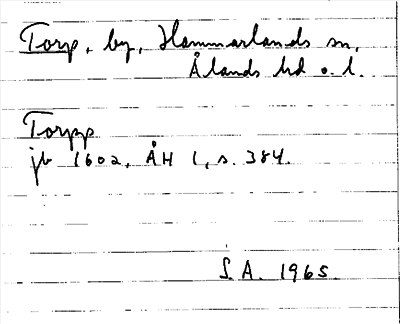 Torp, by, Hammarlands sn,
Ålands hd o. l.
Torpp
jb 1602, ÅH 1, s. 384.
S.A. 1965.